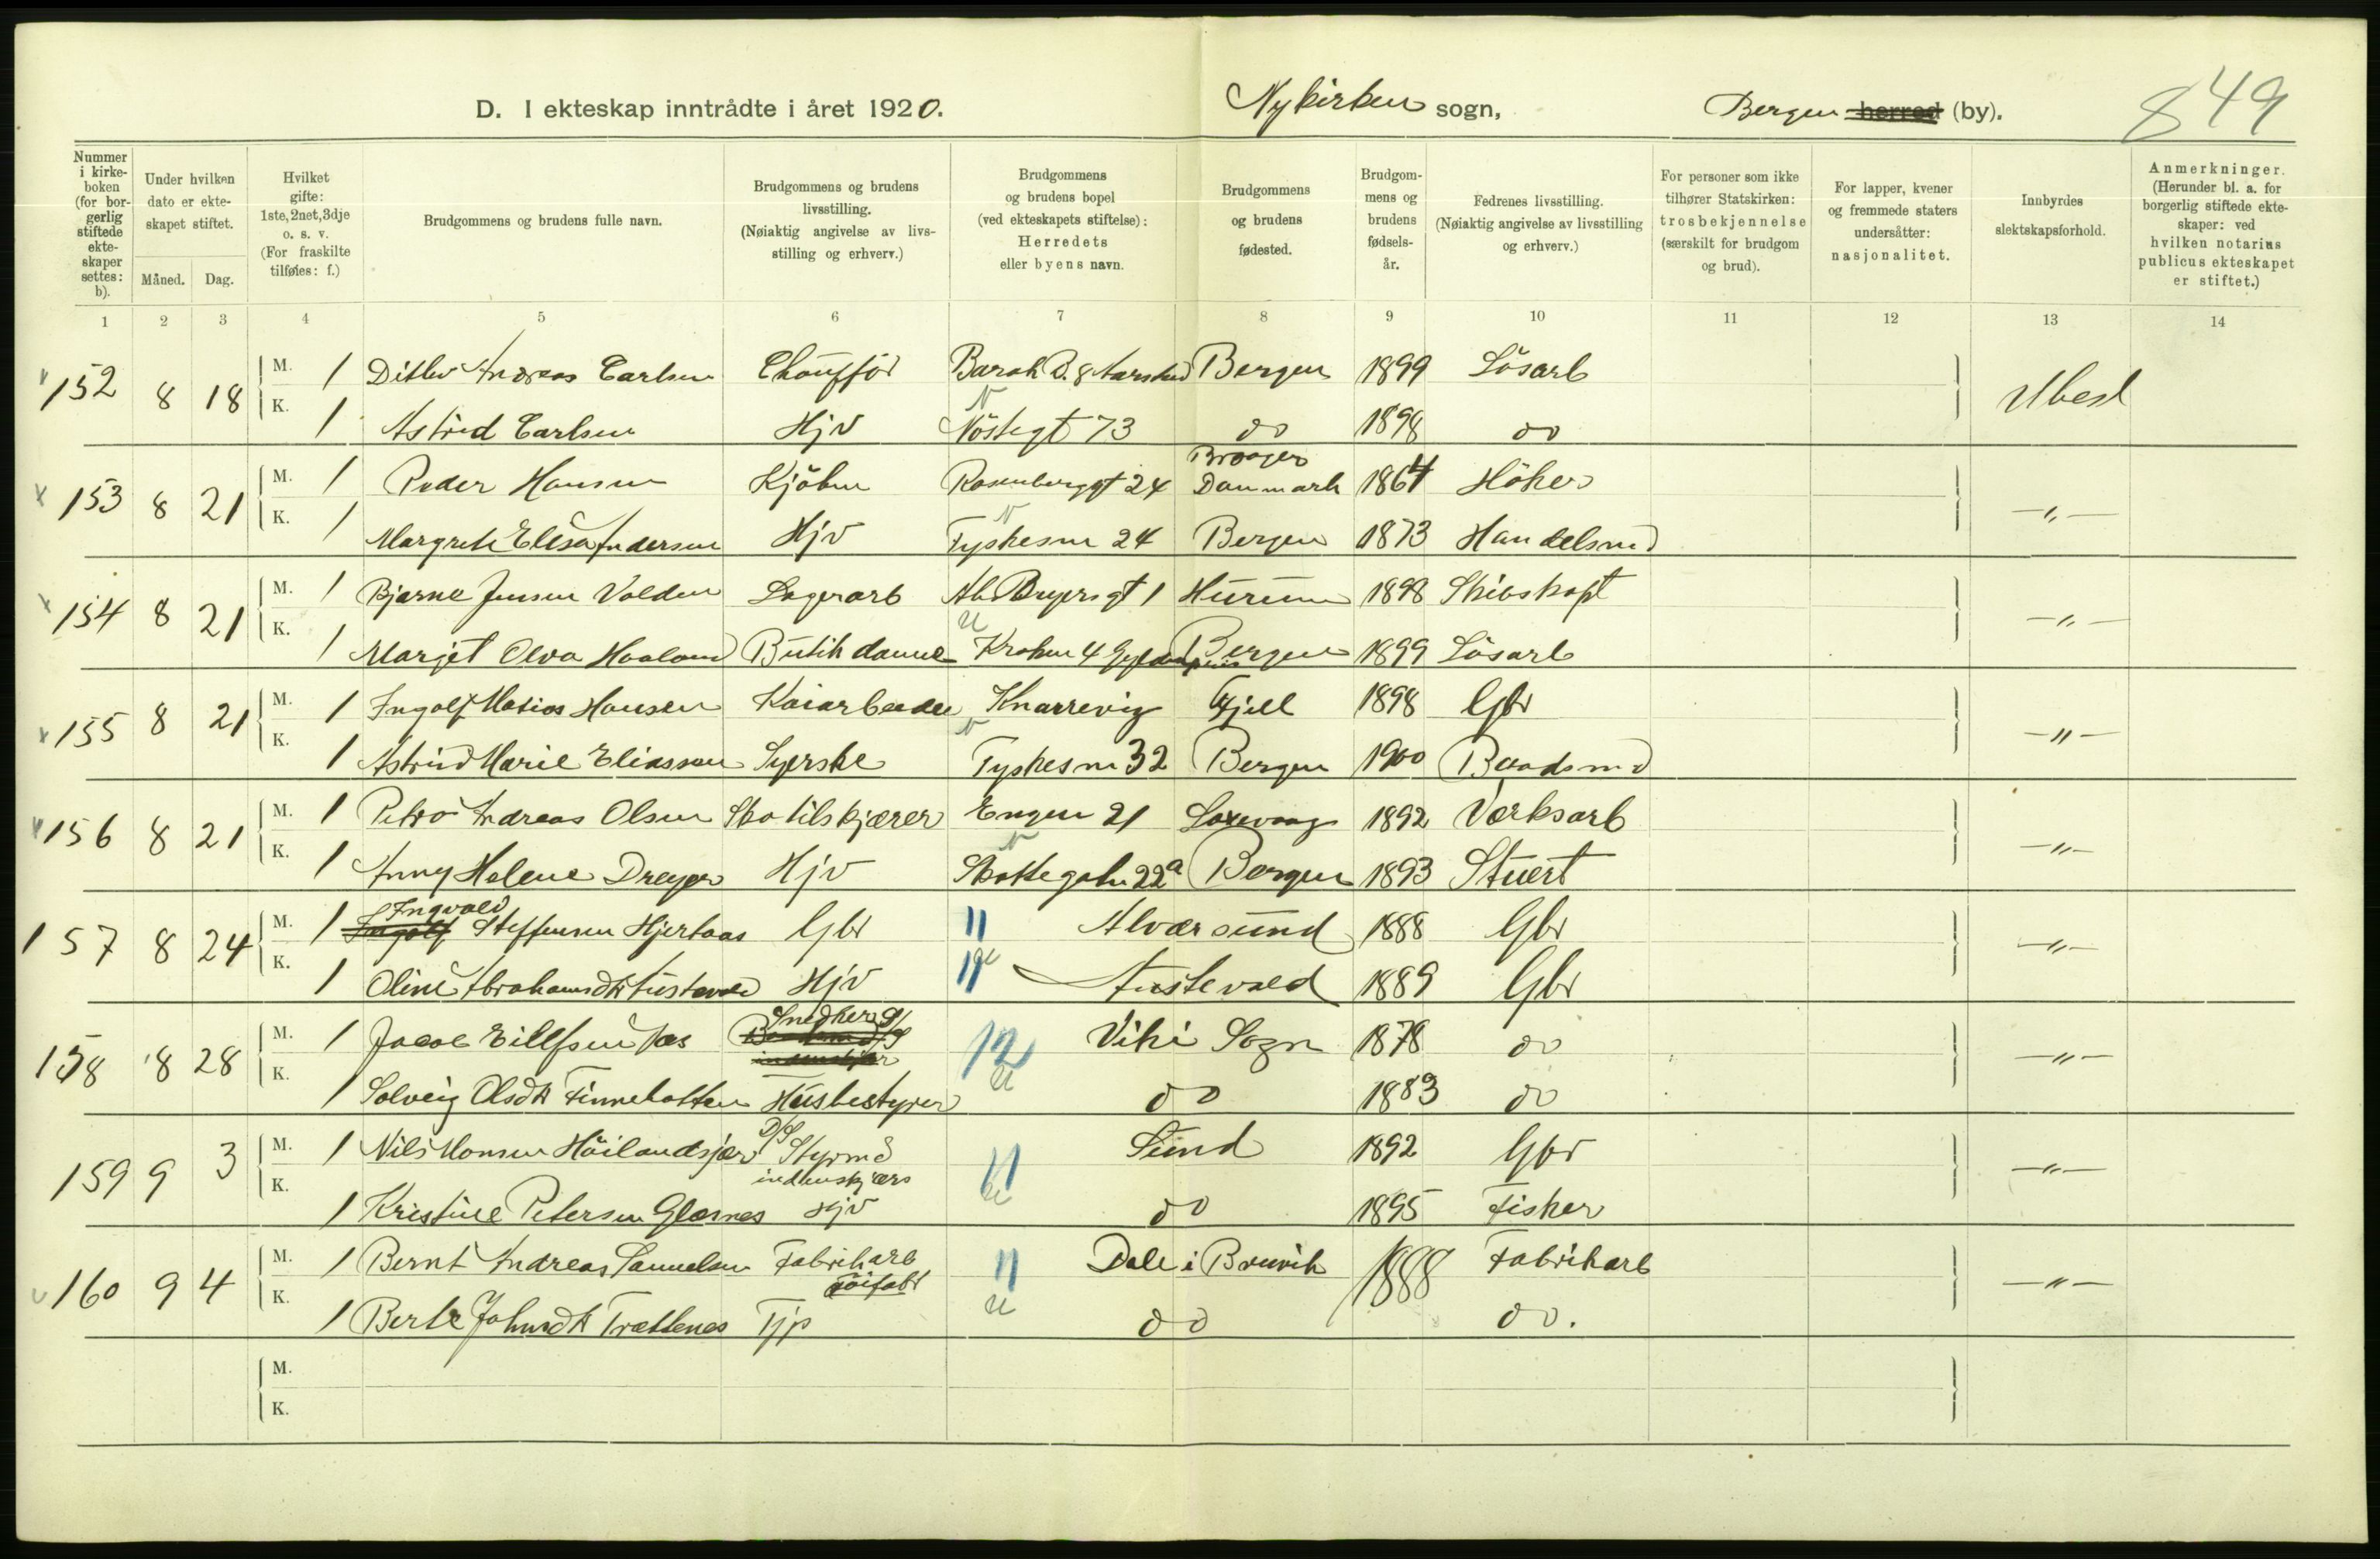 D. I ekteskap inntrådte i året 1920. Nykirken sogn, Bergen herred (by). 849
Nummer i kirkeboken (for borgerlig stiftede ekteskaper settes: b).
Under hvilken dato er ekteskapet stiftet.
Måned. Dag.
Hvilket gifte: 1ste, 2net, 3dje o. s. v. (For fraskilte tilføies: f.)
Brudgommens og brudens fulle navn.
Brudgommens og brudens livsstilling. (Nøiaktig angivelse av livsstilling og erhverv.)
Brudgommens og brudens bopel (ved ekteskapets stiftelse): Herredets eller byens navn.
Brudgommens og brudens fødested.
Brudgommens og brudens fødselsår.
Fedrenes livsstilling. (Nøiaktig angivelse av livsstilling og erhverv.)
For personer som ikke tilhører Statskirken: trosbekjennelse (særskilt for brudgom og brud).
For lapper, kvener og fremmede staters undersåtter: nasjonalitet.
Innbyrdes slektskapsforhold.
Anmerkninger. (Herunder bl. a. for borgerlig stiftede ekteskaper: ved hvilken notarius publicus ekteskapet er stiftet.)
1 2 3 4 5 6 7 8 9 10 11 12 13 14
152 8 18 M. 1 Ditlev Andreas Carlsen Chauffør Barak B. 8 Aarstad Bergen 1899 Lösarb Ubesl
K. 1 Astrid Carlsen Hjv Nöstegt 73 do 1898 do
153 8 21 M. 1 Peder Hansen Kjöbm Rosenberggt 24 Broager Danmark 1864 Höker —"—
K. 1 Margrete Elisa Andersen Hjv Tyskesm 24 Bergen 1873 Handelsmd
154 8 21 M. 1 Bjarne Jensen Volden Lagerarb Ab Breyersgt 1 Hurum 1898 Skibskapt —"—
K. 1 Marjet Olva Haaland Butikdame Krohn 4 Bergen 1899 Lösarb
155 8 21 M. 1 Ingolf Matias Hansen Kaiarbeider Knarrevig Fjell 1898 Gbr —"—
K. 1 Astrid Marie Eliassen Syerske Tyskesm 32 Bergen 1900 Baadsmd
156 8 21 M. 1 Petro Andreas Olsen Skotilskjærer Engen 21 Laxevaag 1892 Værksarb —"—
K. 1 Anny Helene Dreyer Hjv Skottegaten 22a Bergen 1893 Stuert
157 8 24 M. 1 Ingolf Ingvald Steffensen Hjertaas Gbr 11 Alversund 1888 Gbr —"—
K. 1 Oline Abrahamsdtr Austevold Hjv 11 Austevold 1889 Gbr
158 8 28 M. 1 Jacob Eilifsen Snedker 12 Viki Sogn 1878 do —"—
K. 1 Solveig Olsdtr Finnebotten Husbestyrer do 1883 do
159 9 3 M. 1 Nils Monsen Höilandsjær D/S Styrmd indenskjærs 11 Sund 1892 Gbr —"—
K. 1 Kristine Petersen Glesnes Hjv do 1895 Fisker
160 9 4 M. 1 Bernt Andreas Samuelsen Fabrikarb Töifabr 11 Dale i Bruvik 1888 Fabrikarb —"—
K. 1 Berte Johnsdtr Trættenes Tjp do do.
M.
K.